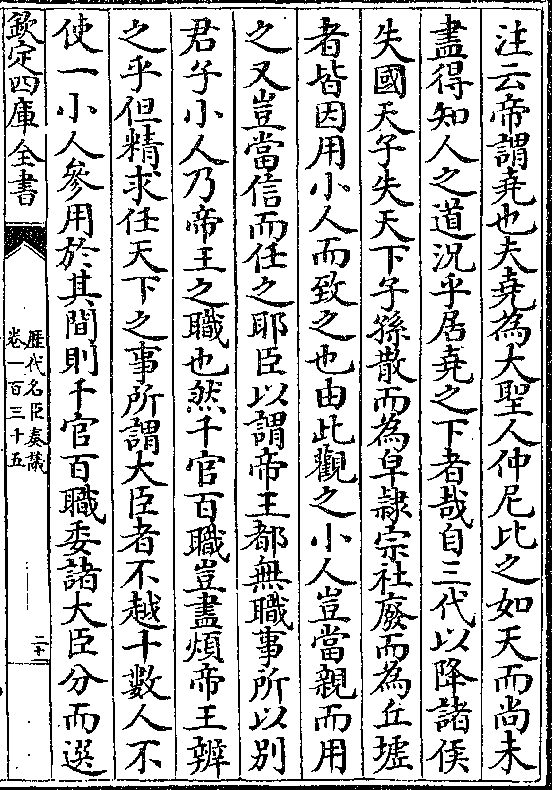 注云帝謂堯也夫堯為大聖人仲尼比之如天而尚未
盡得知人之道況乎居堯之下者哉自三代以降諸侯
失國天子失天下子孫散而為皁隷宗社廢而為丘墟
者皆因用小人而致之也由此觀之小人豈當親而用
之又豈當信而任之耶臣以謂帝王都無職事所以别
君子小人乃帝王之職也然千官百職豈盡煩帝王辨
之乎但精求任天下之事所謂大臣者不越十數人不
使一小人參用於其間則千官百職委諸大臣分而選
欽定四庫全書
歷代名臣奏議
卷一百三十五
二十一